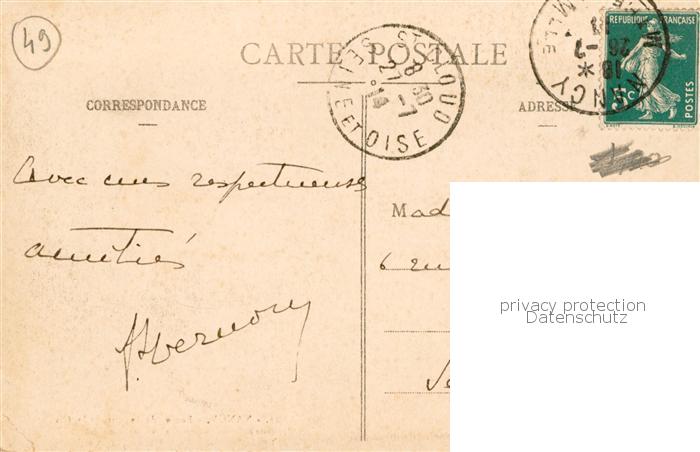 49
CARTE POSTALE
CORRESPONDANCE
ADRESSE
ST CLOUD
8 30
27 -7
14
SEINE ET OISE
NANCY
26 -7
REPUBLIQUE FRANÇAISE
5c
POSTES
Avec mes respectueuses
amitiés
Mad
6 rue
privacy protection
Datenschutz